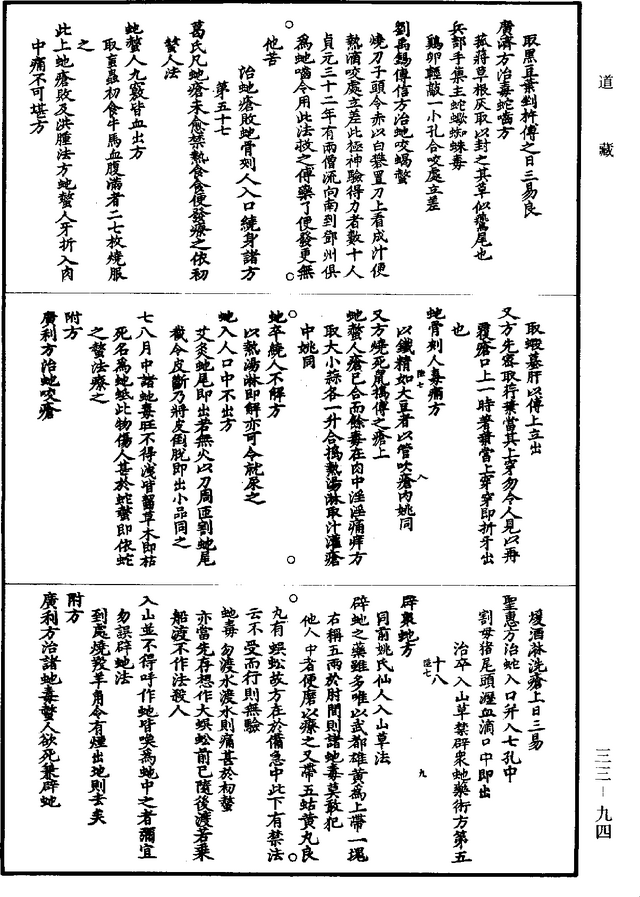 道藏
取黑豆葉剉杵傅之日三易良
廣濟方治毒蛇嚙方
菰蔣草根灰取以封之其草似鷰尾也
兵部手集主蛇蠍蜘蛛毒
鷄卵輕敲一小孔合咬處立差
劉禹錫傳信方治虵咬蝎螫
燒刀子頭令赤以白礬置刀上看成汁便
熱滴咬處立差此極神驗得力者數十人
貞元三十二年有兩僧流向南到鄧州俱
為虵嚙令用此法救之傅藥了便發更無
他苦
治虵瘡敗虵骨刺人入口繞身諸方
第五十七
葛氏凡虵瘡未愈禁熱食食便發療之依初
螫人法
虵螫人九竅皆血出方
取䖟蟲初食牛馬血腹滿者二七枚燒服
之
此上虵瘡敗及洪腫法方虵螫人牙折入肉
中痛不可堪方
取蝦蟇肝以傅上立出
又方先密取荇葉當其上穿勿令人見以再
覆瘡口上一時著葉當上穿穿即折牙出
也
虵骨刺人毒痛方
以鐵精如大豆者以管吹瘡內姚同
又方燒死鼠擣傅之瘡上
虵螫人瘡已合而餘毒在肉中淫淫痛痒方
取大小蒜各一升合擣熱湯淋取汁灌瘡
中姚同
虵卒繞人不解方
以熱湯淋即解亦可令就尿之
虵入人口中不出方
艾灸虵尾即出若無火以刀周匝割虵尾
截令皮斷乃將皮倒脫即出小品同之
七八月中諸虵毒旺不得洩皆齧草木即枯
死名為虵蚳此物傷人甚於蛇螫即依蛇
之螫法療之
附方
廣利方治虵咬瘡
煖酒淋洗瘡上日三易
聖惠方治蛇入口并入七孔中
割母猪尾頭瀝血滴口中即出
治卒入山草禁辟衆虵藥術方第五
十八
辟衆虵方
同前姚氏仙人入山草法
辟虵之藥雖多唯以武都雄黃為上帶一塊
右稱五兩於肘間則諸虵毒莫敢犯
他人中者便磨以療之又帶五蛄黃丸良
九有蜈蚣故方在於備急中此下有禁法
云不受而行則無驗
虵毒勿渡水渡水則痛甚於初螫
亦當先存想作大蜈蚣前已隨後渡若乘
船渡不作法殺人
入山並不得呼作虵皆喚為虵中之者彌宜
勿誤辟虵法
到處燒羖羊角令有煙出虵則去矣
附方
廣利方治諸虵毒螫人欲死兼辟虵
三三－九四